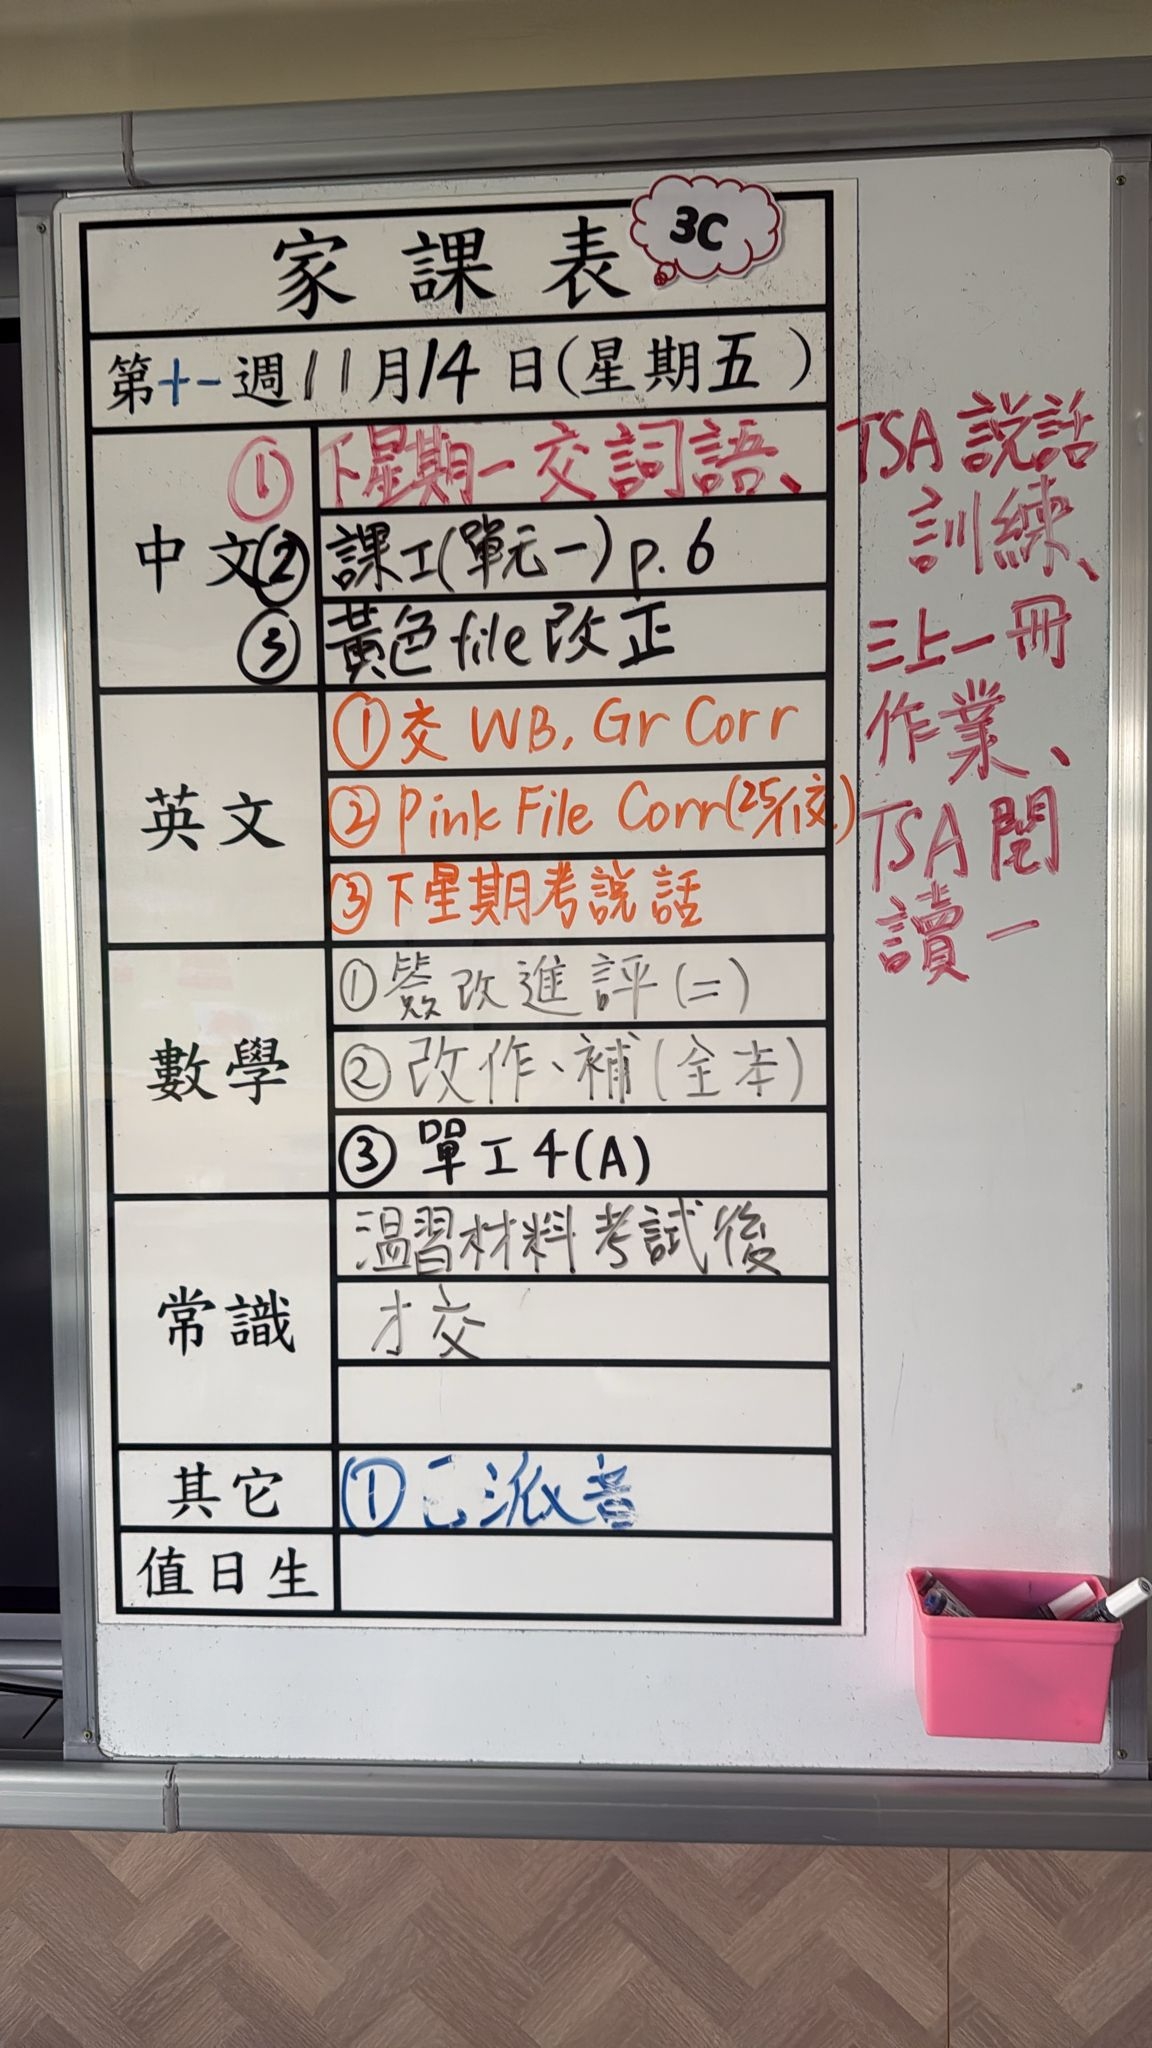 家課表 3C
第十一週11月14日(星期五)
中文
① 下星期一交詞語、TSA説話
訓練、
三上一冊
作業、
TSA閱
讀一
② 課工(單元一) p.6
③ 黃色file改正
英文
①交 WB, Gr Corr
② Pink File Corr(25/11交)
③下星期考説話
數學
①簽改進評(二)
②改作、補(全本)
③ 單工4(A)
常識
温習材料考試後
才交
其它
①已派者
值日生